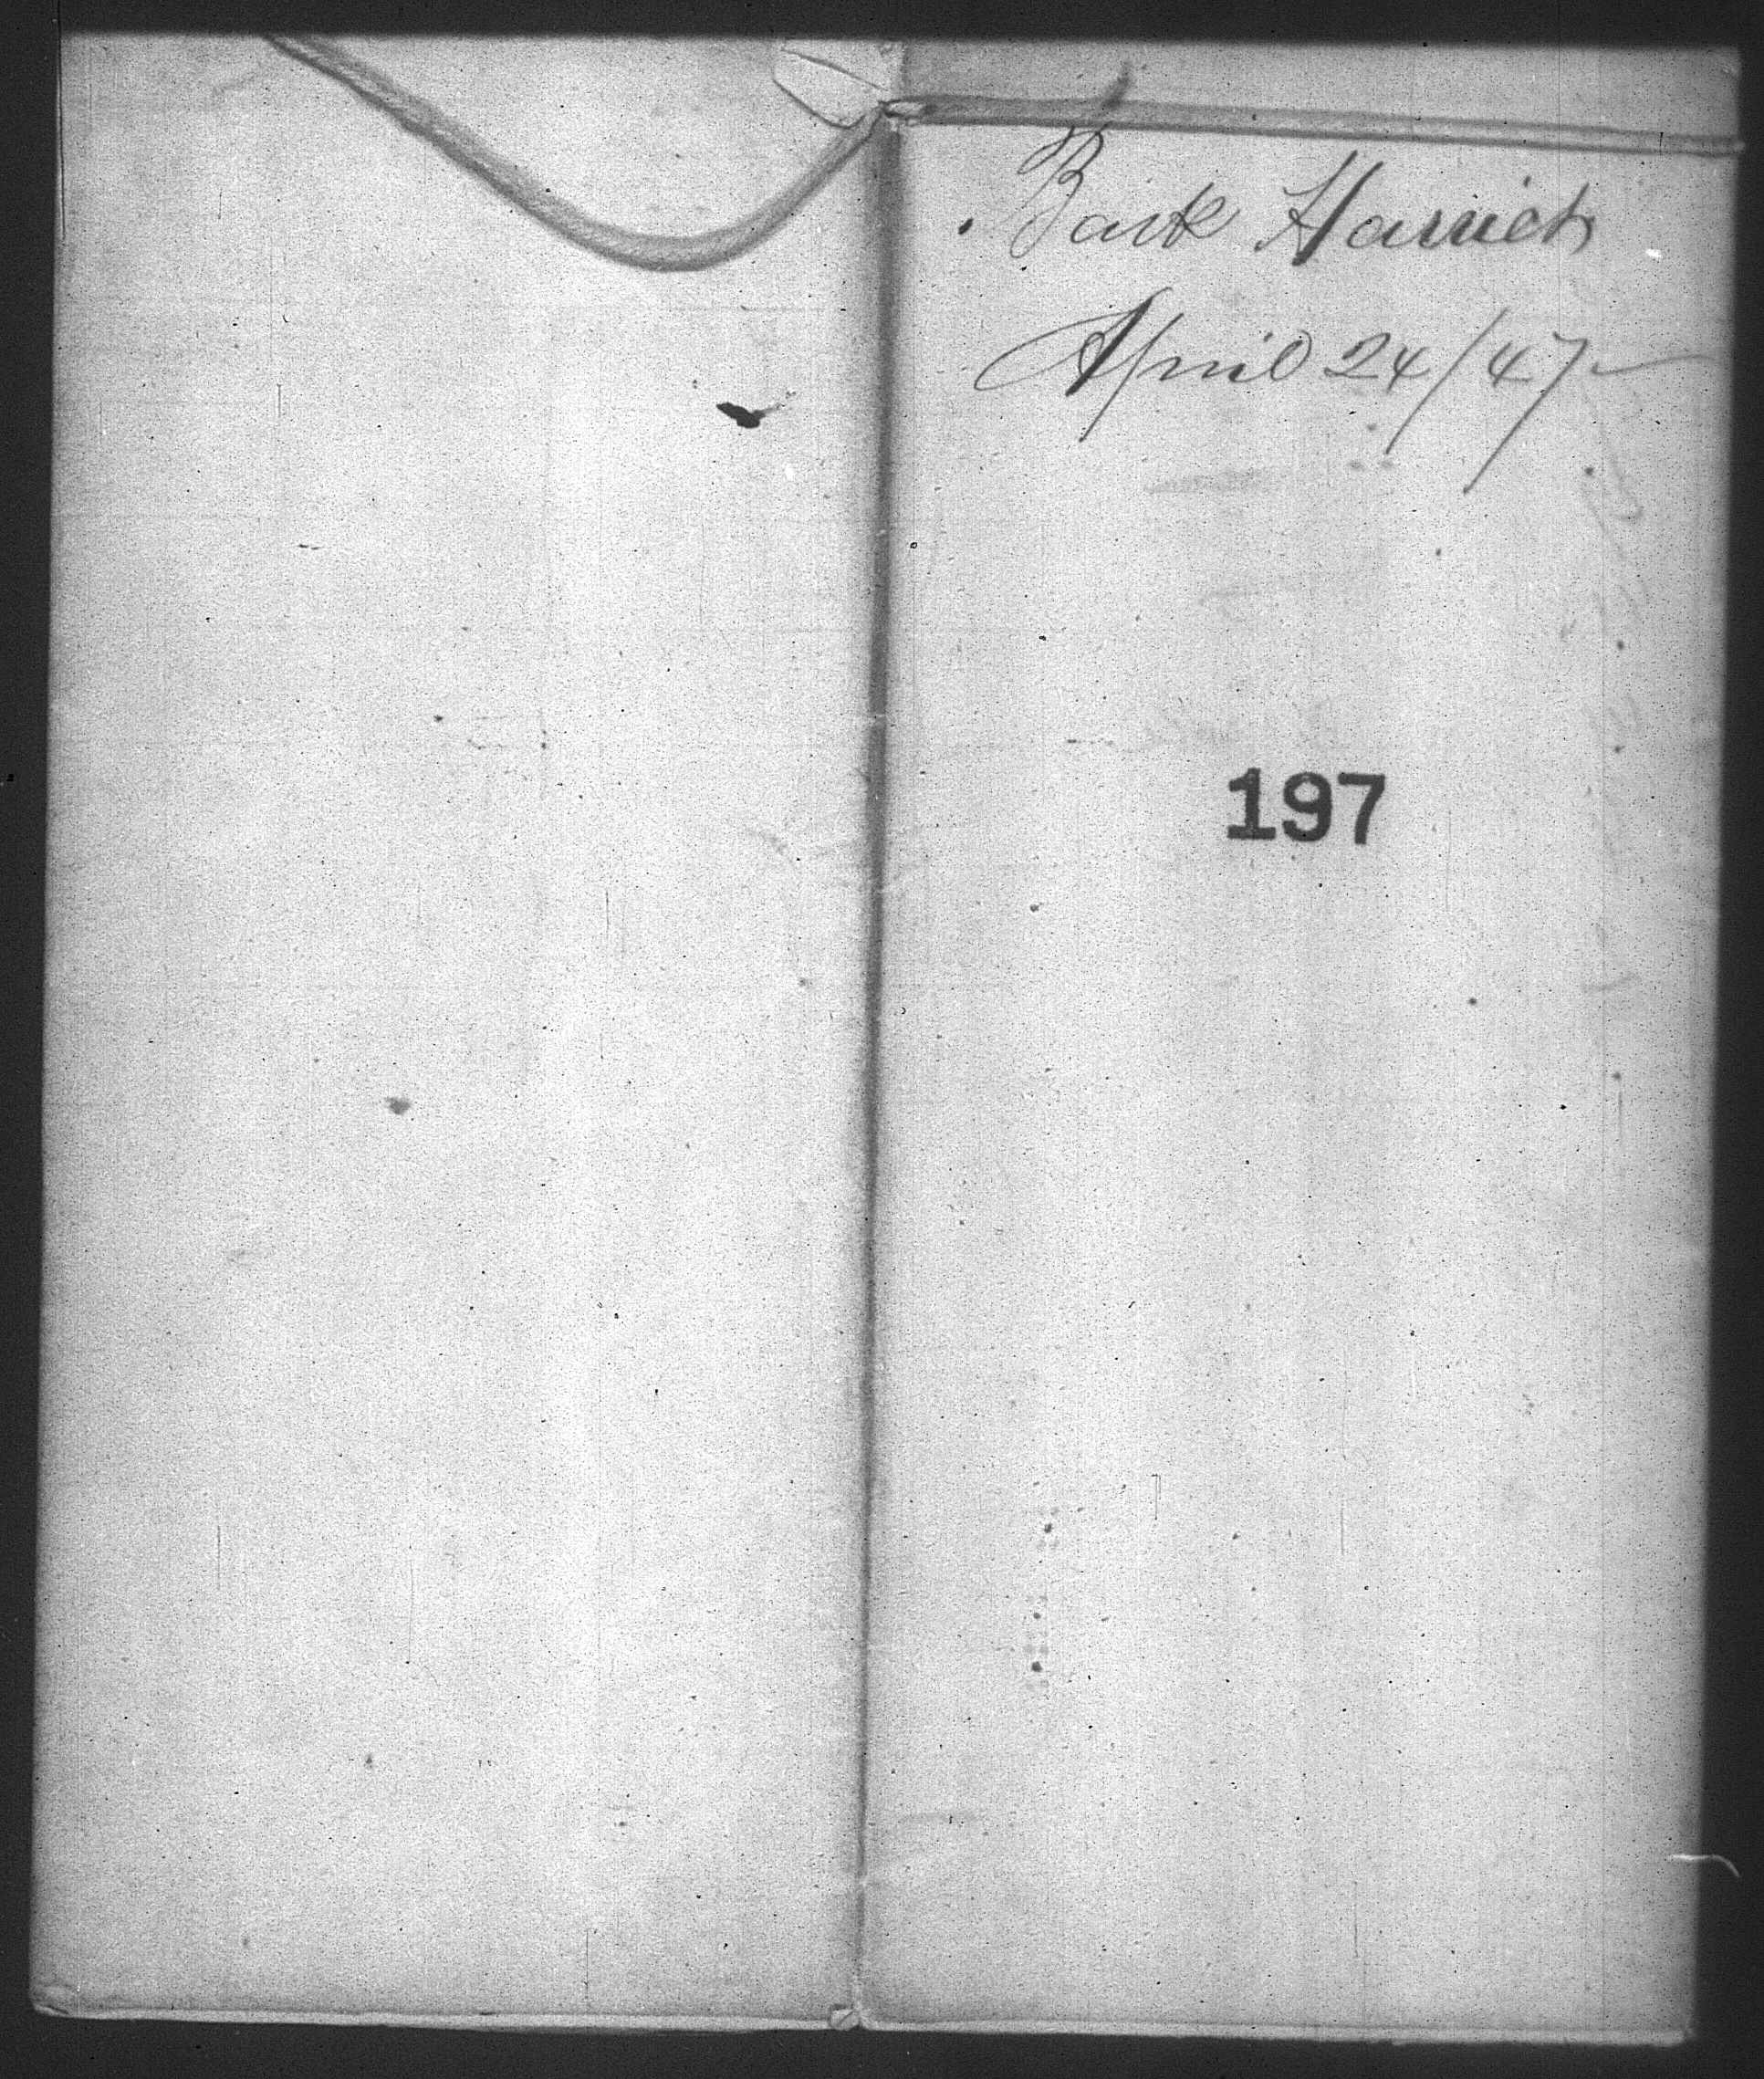 Bark Harriet
April 24/47
197